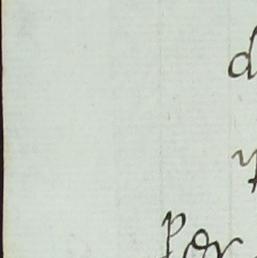 d
y
for